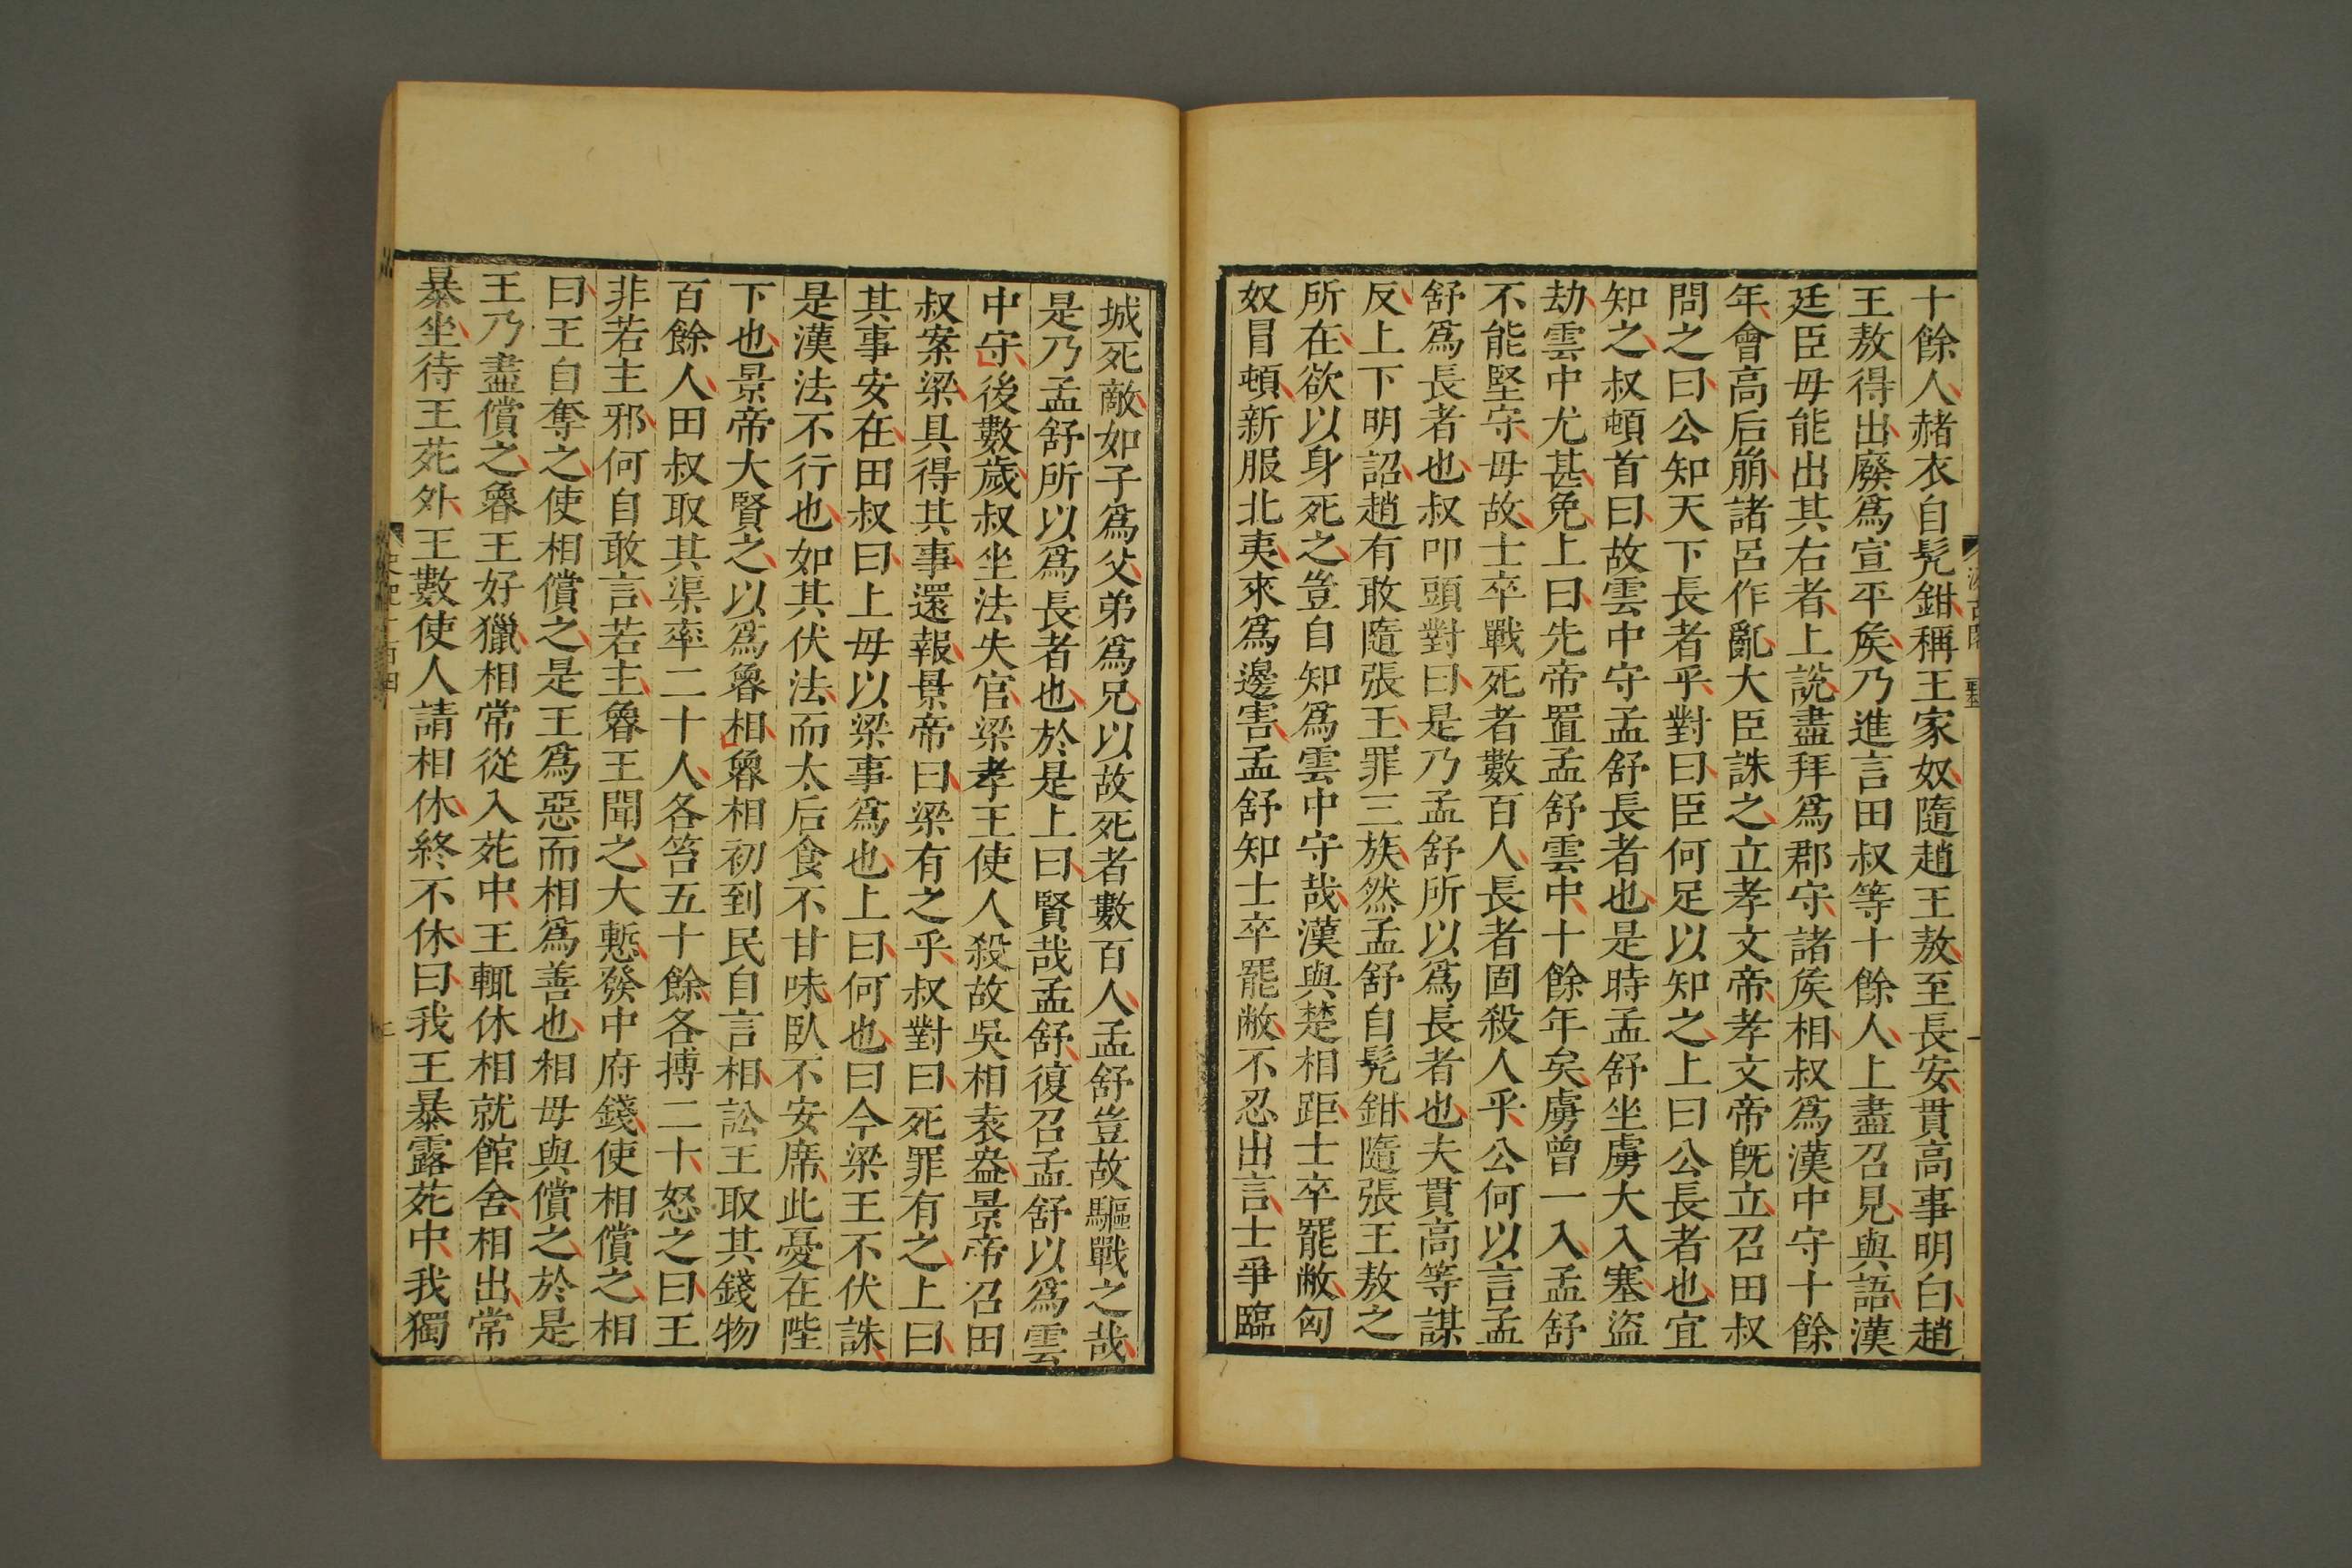 十餘人赭衣自髠鉗稱王家奴隨趙王敖至長安貫高事明白趙
王敖得出廢爲宣平矦乃進言田叔等十餘人上盡召見與語漢
廷臣毋能出其右者上說盡拜爲郡守諸矦相叔爲漢中守十餘
年會高后崩諸呂作亂大臣誅之立孝文帝孝文帝旣立召田叔
問之曰公知天下長者乎對曰臣何足以知之上曰公長者也宜
知之叔頓首曰故雲中守孟舒長者也是時孟舒坐虜大入塞盜
劫雲中尤甚免上曰先帝置孟舒雲中十餘年矣虜曾一入孟舒
不能堅守毋故士卒戰死者數百人長者固殺人乎公何以言孟
舒爲長者也叔叩頭對曰是乃孟舒所以爲長者也夫貫高等謀
反上下明詔趙有敢隨張王罪三族然孟舒自髠鉗隨張王敖之
所在欲以身死之豈自知爲雲中守哉漢與楚相距士卒罷敝匈
奴冒頓新服北夷來爲邊害孟舒知士卒罷敝不忍出言士爭臨
城死敵如子爲父弟爲兄以故死者數百人孟舒豈故驅戰之哉
是乃孟舒所以爲長者也於是上曰賢哉孟舒復召孟舒以爲雲
中守後數歲叔坐法失官梁孝王使人殺故吳相袁盎景帝召田
叔案梁具得其事還報景帝曰梁有之乎叔對曰死罪有之上曰
其事安在田叔曰上毋以梁事爲也上曰何也曰今梁王不伏誅
是漢法不行也如其伏法而太后食不甘味臥不安席此憂在陛
下也景帝大賢之以爲魯相魯相初到民自言相訟王取其錢物
百餘人田叔取其渠率二十人各笞五十餘各搏二十怒之曰王
非若主邪何自敢言若主魯王聞之大慙發中府錢使相償之相
曰王自奪之使相償之是王爲惡而相爲善也相毋與償之於是
王乃盡償之魯王好獵相常從入苑中王輒休相就館舍相出常
暴坐待王苑外王數使人請相休終不休曰我王暴露苑中我獨